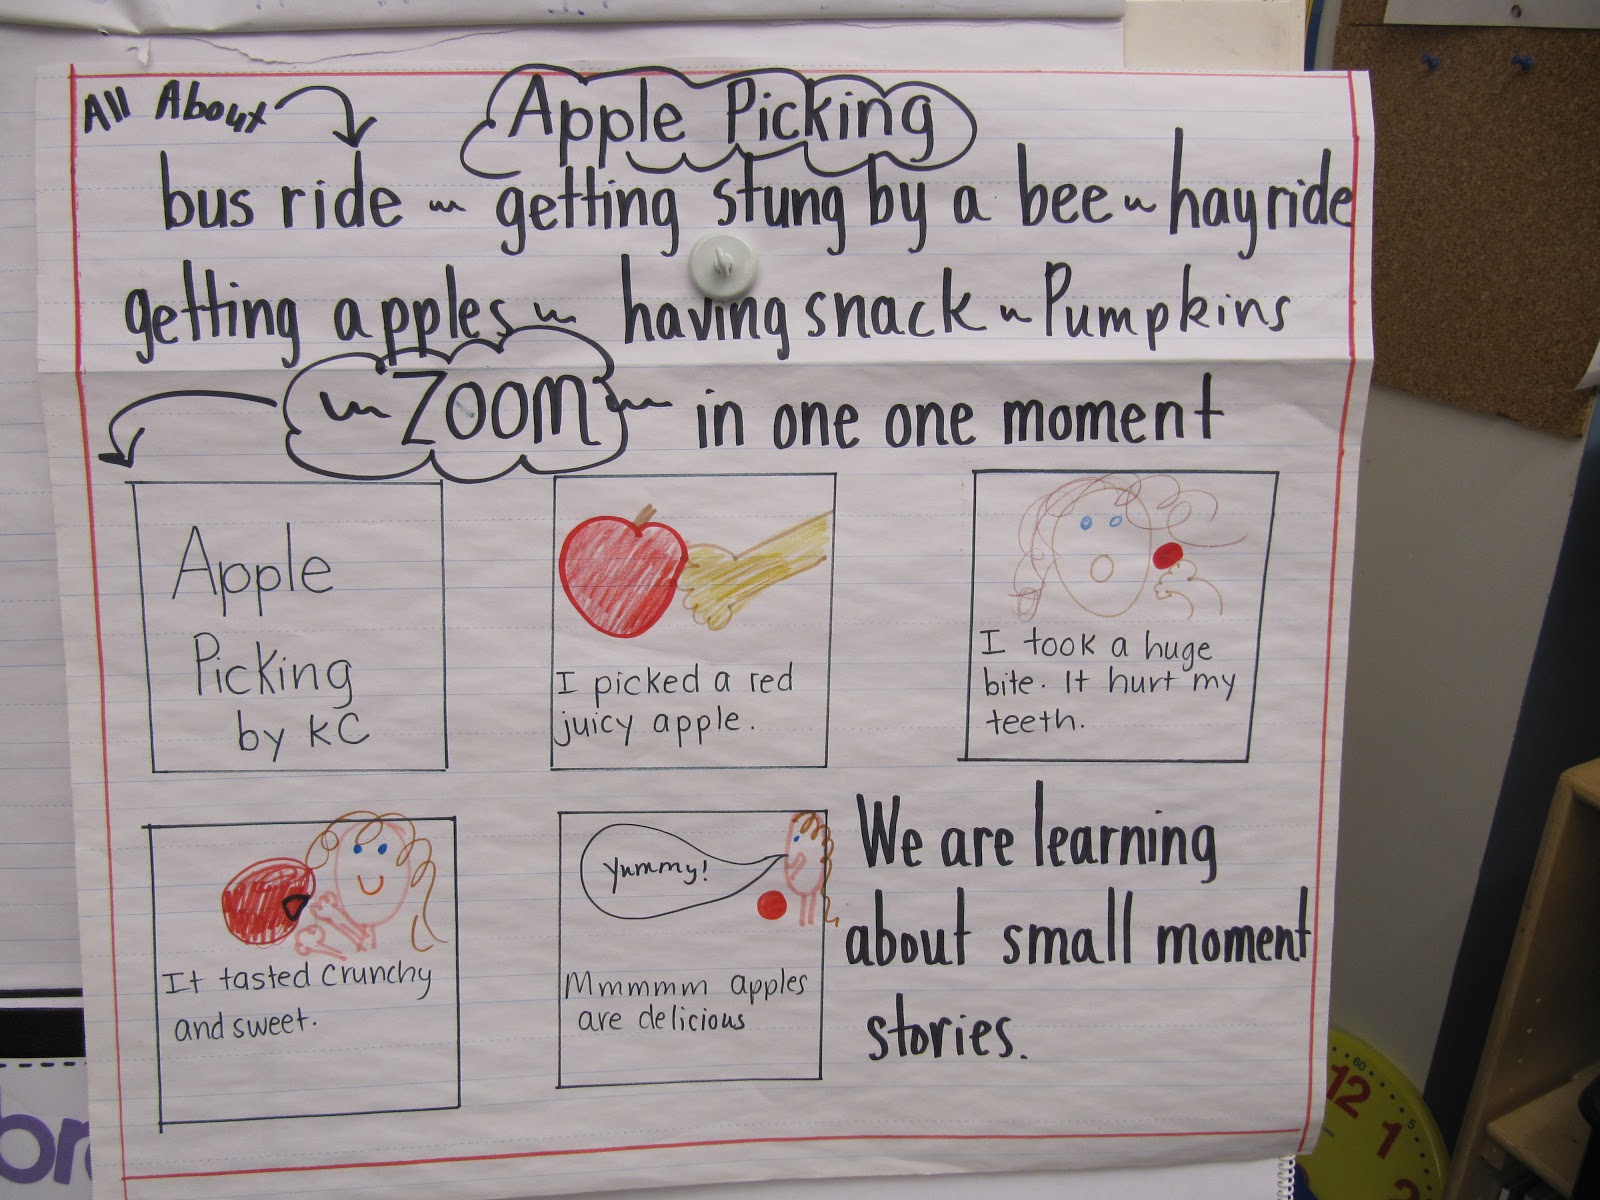 All About
Apple Picking
bus ride ~ getting stung by a bee ~ hayride
getting apples ~ having snack ~ Pumpkins
~ ZOOM ~ in one one moment
Apple
Picking
by KC
I picked a red
juicy apple.
I took a huge
bite. It hurt my
teeth.
It tasted crunchy
and sweet.
Yummy!
Mmmmm apples
are delicious
We are learning
about small moment
stories.
br
60
12
5
1
2